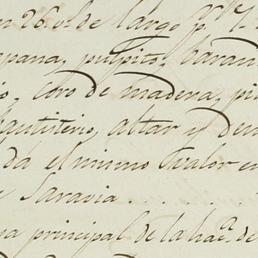 n 26 vs. de largo pr.
pana, pulpito, baran
o, Coro de madera, pi
bautisterio, altar y dem
da el mismo Valor en
Saravia
a principal de la hacª. de